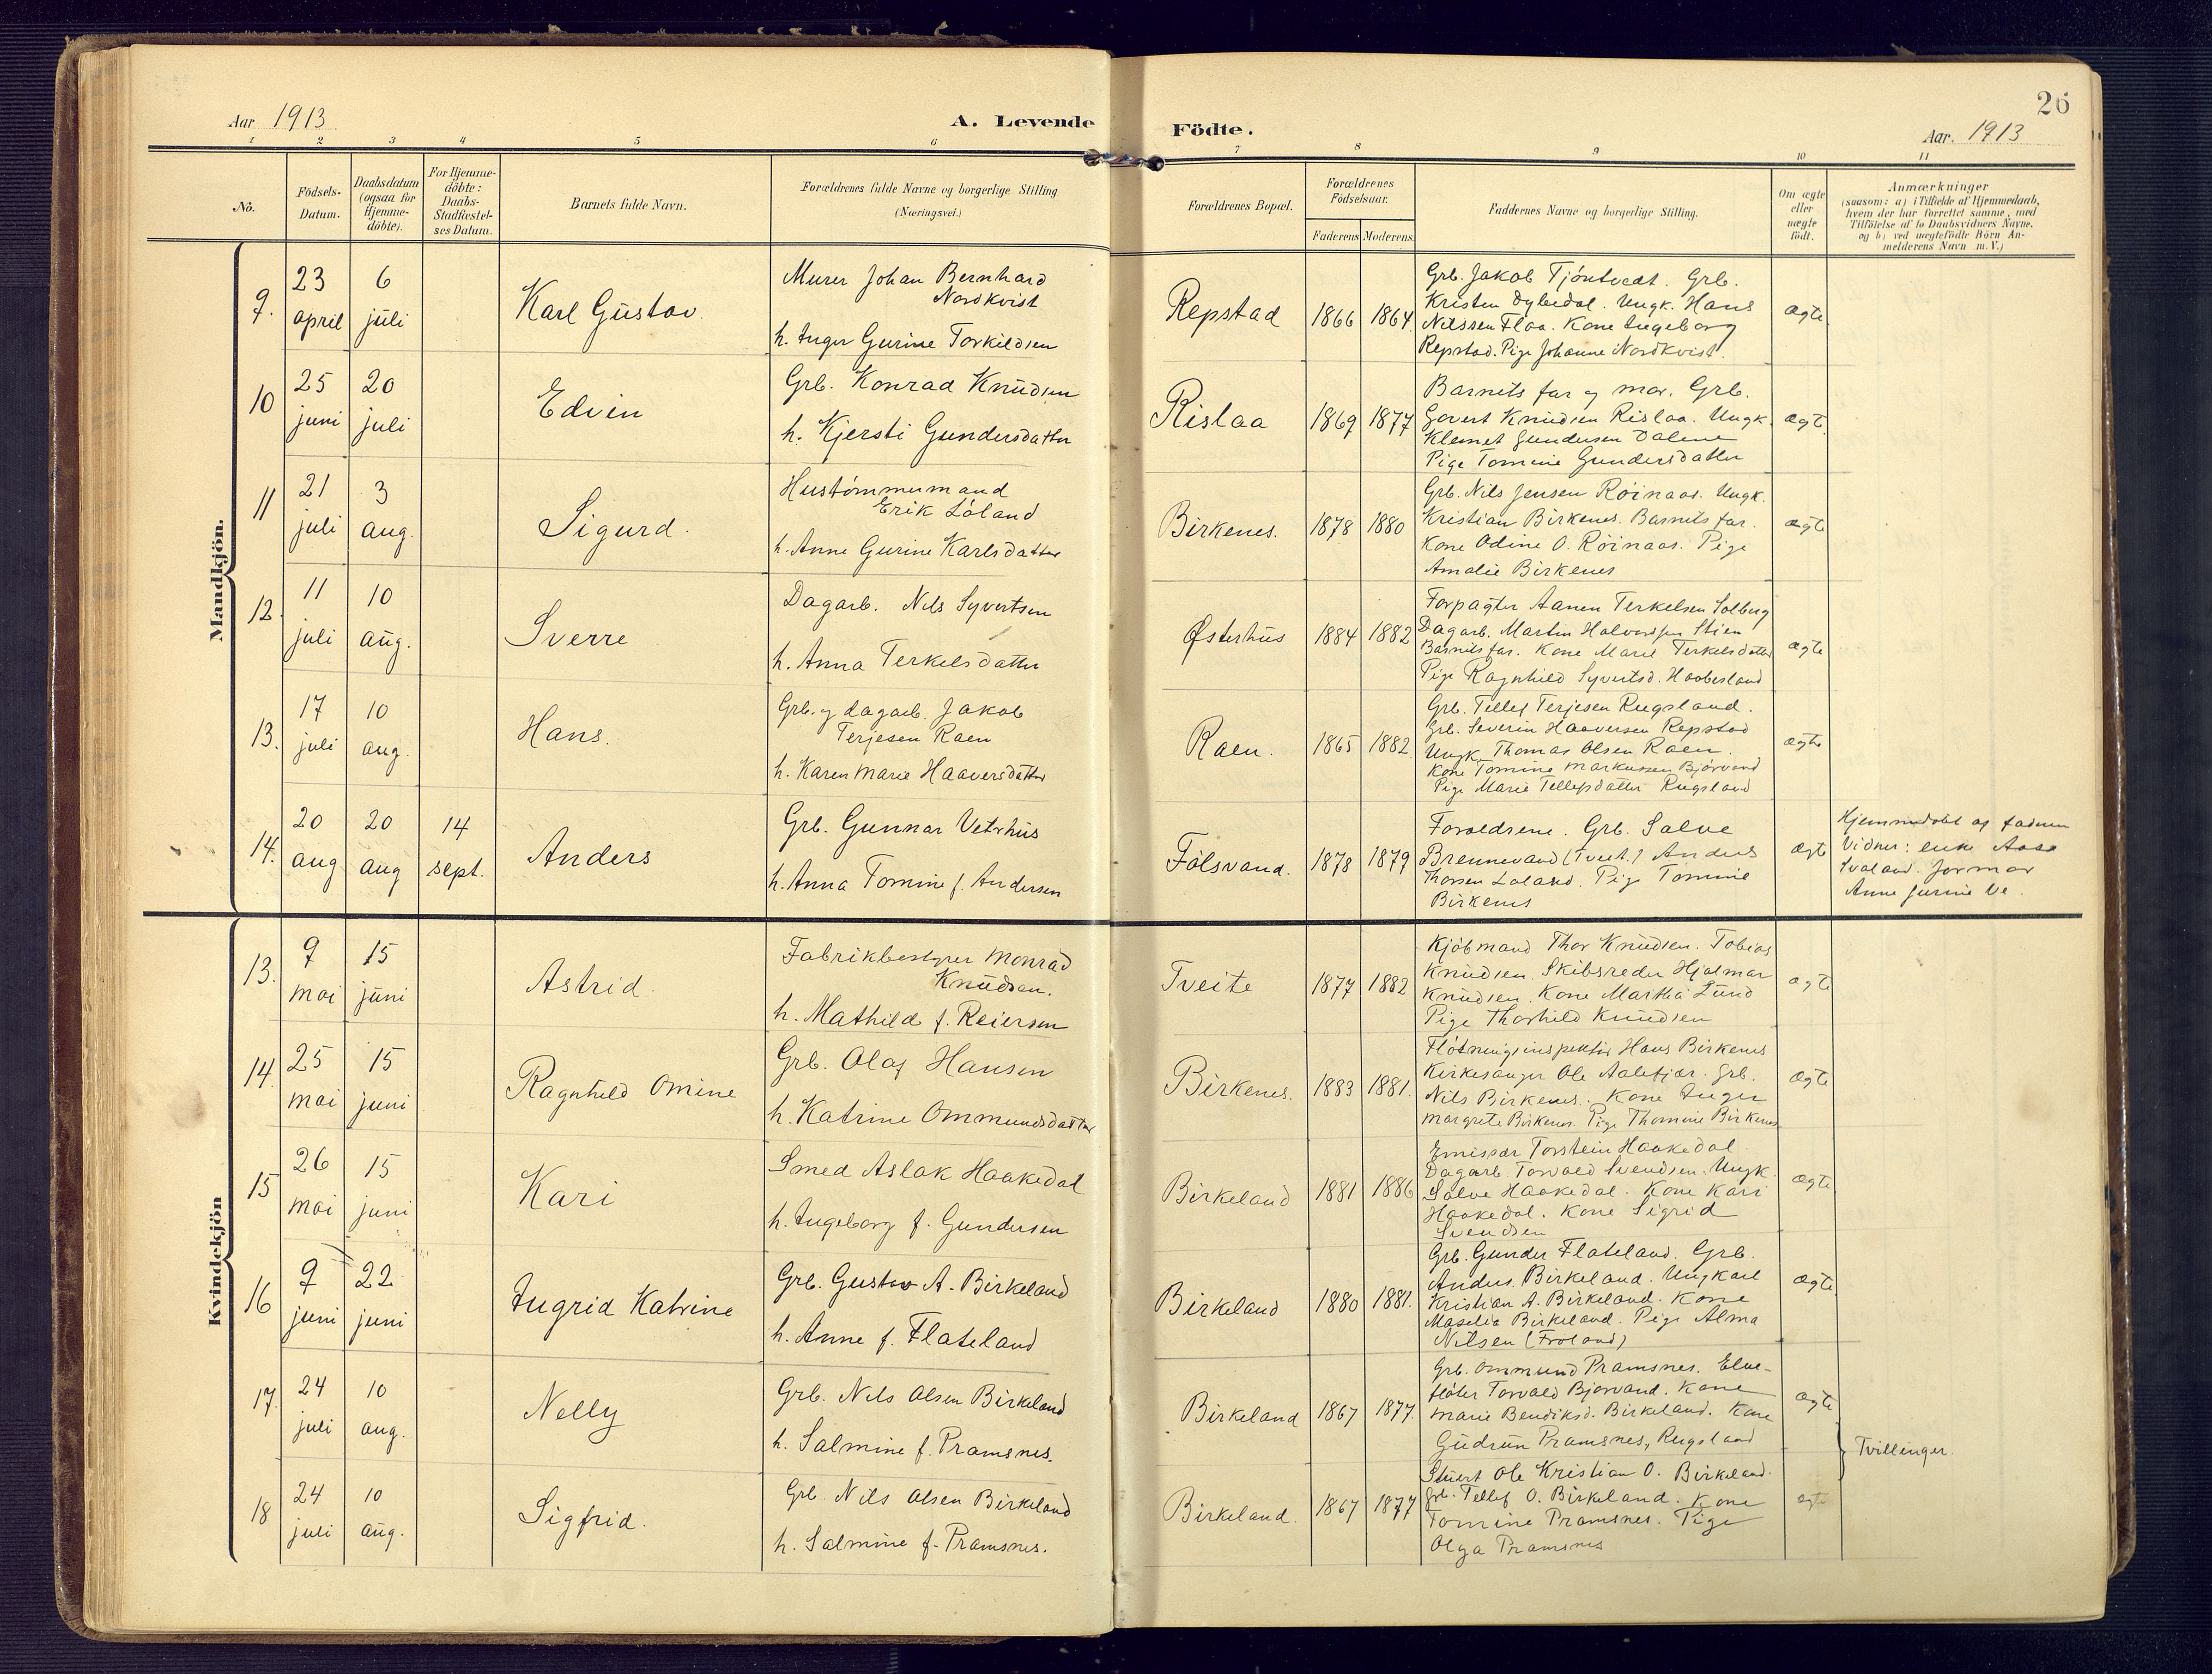 26
Aar 1913
A. Levende
Födte.
Aar. 1913
1 2 3 4 5 6 7 8 9 10 11
No.
Födsels-
Datum.
Daabsdatum
(ogsaa for
Hjemme-
döbte).
For Hjemme-
döbte:
Daabs-
Stadfæstel-
ses Datum.
Barnets fulde Navn.
Forældrenes fulde Navne og borgerlige Stilling
(Næringsvei.)
Forældrenes Bopæl.
Forældrenes
Födselsaar.
Faderens
Moderens.
Faddernes Navne og borgerlige Stilling.
Om ægte
eller
uægte
födt.
Anmærkninger
(saasom: a) i Tilfælde af Hjemmedaab,
hvem der har forrettet samme, med
Tilföielse af to Daabsvidners Navne,
og b) ved uægtefödte Börn An-
melderens Navn m.V.)
Mandkjön.
9.
23
april
6
juli
Karl Gustav.
Murer Johan Bernhard
Nordkvist
h. Inger Gurine Torkildsen
Repstad
1866
1864
Grb. Jakob Tjöntvedt. Grb.
Kristen Dybedal. Ungk. Hans
Nilssen Flaa. Kone Ingeborg
Repstad. Pige Johanne Nordkvist.
ægte
10
25
juni
20
juli
Edvin
Grb. Konrad Knudsen
h. Kjersti Gundersdatter
Rislaa
1869
1877
Barnets far og mor. Grb.
Govert Knudsen Rislaa. Ungk.
Klemet Gundersen Dalene
Pige Tomine Gundersdatter
ægte
11
21
juli
3
aug.
Sigurd.
Hustömmermand
Erik Löland
h. Anne Gurine Karlsdatter
Birkenes.
1878
1880
Grb. Nils Jensen Röinaas. Ungk.
Kristian Birkenes. Barnets far.
Kone Odine O. Röinaas. Pige
Amalie Birkenes
ægte
12.
11
juli
10
aug.
Sverre
Dagarb. Nils Syvertsen
h. Anna Terkelsdatter
Østerhus
1884
1882
Forpagter Aanen Terkelsen Solberg
Dagarb. Martin Halvorsen Stien
Barnets far. Kone Marie Terkelsdatter
Pige Ragnhild Syvertsd. Haabesland
ægte
13.
17
juli
10
aug.
Hans.
Grb. og dagarb. Jakob
Terjesen Raen
h. Karen Marie Haaversdatter
Raen.
1865
1882
Grb. Tellef Terjesen Rugsland.
Grb. Severin Haaversen Repstad
Ungk. Thomas Olsen Raen.
Kone Tomine Markussen Bjorvand
Pige Marie Tellefsdatter Rugsland
ægte
14.
20
aug
20
aug
14
sept.
Anders
Grb. Gunnar Vetrhus
h. Anna Tomine f. Andersen
Fölsvand.
1878
1879
Foreldrene. Grb. Salve
Brennevand (Tveit.) Anders
Thorsen Loland. Pige Tomine
Birkenes
ægte
Hjemmedöbt af faderen
Vidner: enke Aase
Svaland. Jormor
Anne Jurine Ve.
Kvindekjön
13.
9
mai
15
juni
Astrid.
Fabrikbestyrer Monrad
Knudsen.
h. Mathilde f. Reiersen
Tveite
1877
1882
Kjöbmand Thor Knudsen. Tobias
Knudsen. Skibsreder Hjalmar
Knudsen. Kone Martha Lund
Pige Thorhild Knudsen
ægte
14.
25
mai
15
juni
Ragnhild Omine
Grb. Olaf Hansen
h. Katrine Ommundsdatter
Birkenes.
1883
1881.
Flötningsinspektör Hans Birkenes
Kirkesanger Ole Aalefjær. Grb.
Nils Birkenes. Kone Inger
Margrete Birkenes. Pige Thomine Birkenes
ægte
15
26
mai
15
juni
Kari
Smed Aslak Haakedal
h. Ingeborg f. Gundersen
Birkeland
1881
1886
Emissær Torstein Haakedal
Dagarb Torvald Svendsen. Ungk.
Salve Haakedal. Kone Kari
Haakedal. Kone Sigrid
Svendsen
ægte
16
9
juni
22
juni
Ingrid Katrine
Grb. Gustav A. Birkeland
h. Anne f. Flateland
Birkeland
1880
1881.
Grb. Gunder Flateland. Grb.
Anders Birkeland. Ungkarl
Kristian A. Birkeland. Kone
Maselia Birkeland. Pige Alma
Nilsen (Froland)
ægte
17.
24
juli
10
aug.
Nelly
Grb. Nils Olsen Birkeland
h. Salmine f. Pramsnes.
Birkeland
1867
1877.
Grb. Ommund Pramsnes. Elve-
flöter Torvald Bjorvand. Kone
Marie Bendiksd. Birkeland. Kone
Gudrun Pramsnes, Rugsland
ægte
Tvillinger.
18
24
juli
10
aug.
Sigfrid.
Grb. Nils Olsen Birkeland
h. Salmine f. Pramsnes.
Birkeland.
1867
1877
Ole Kristian O. Birkeland.
Grb. Tellef O. Birkeland. Kone
Tomine Pramsnes. Pige
Olga Pramsnes
ægte